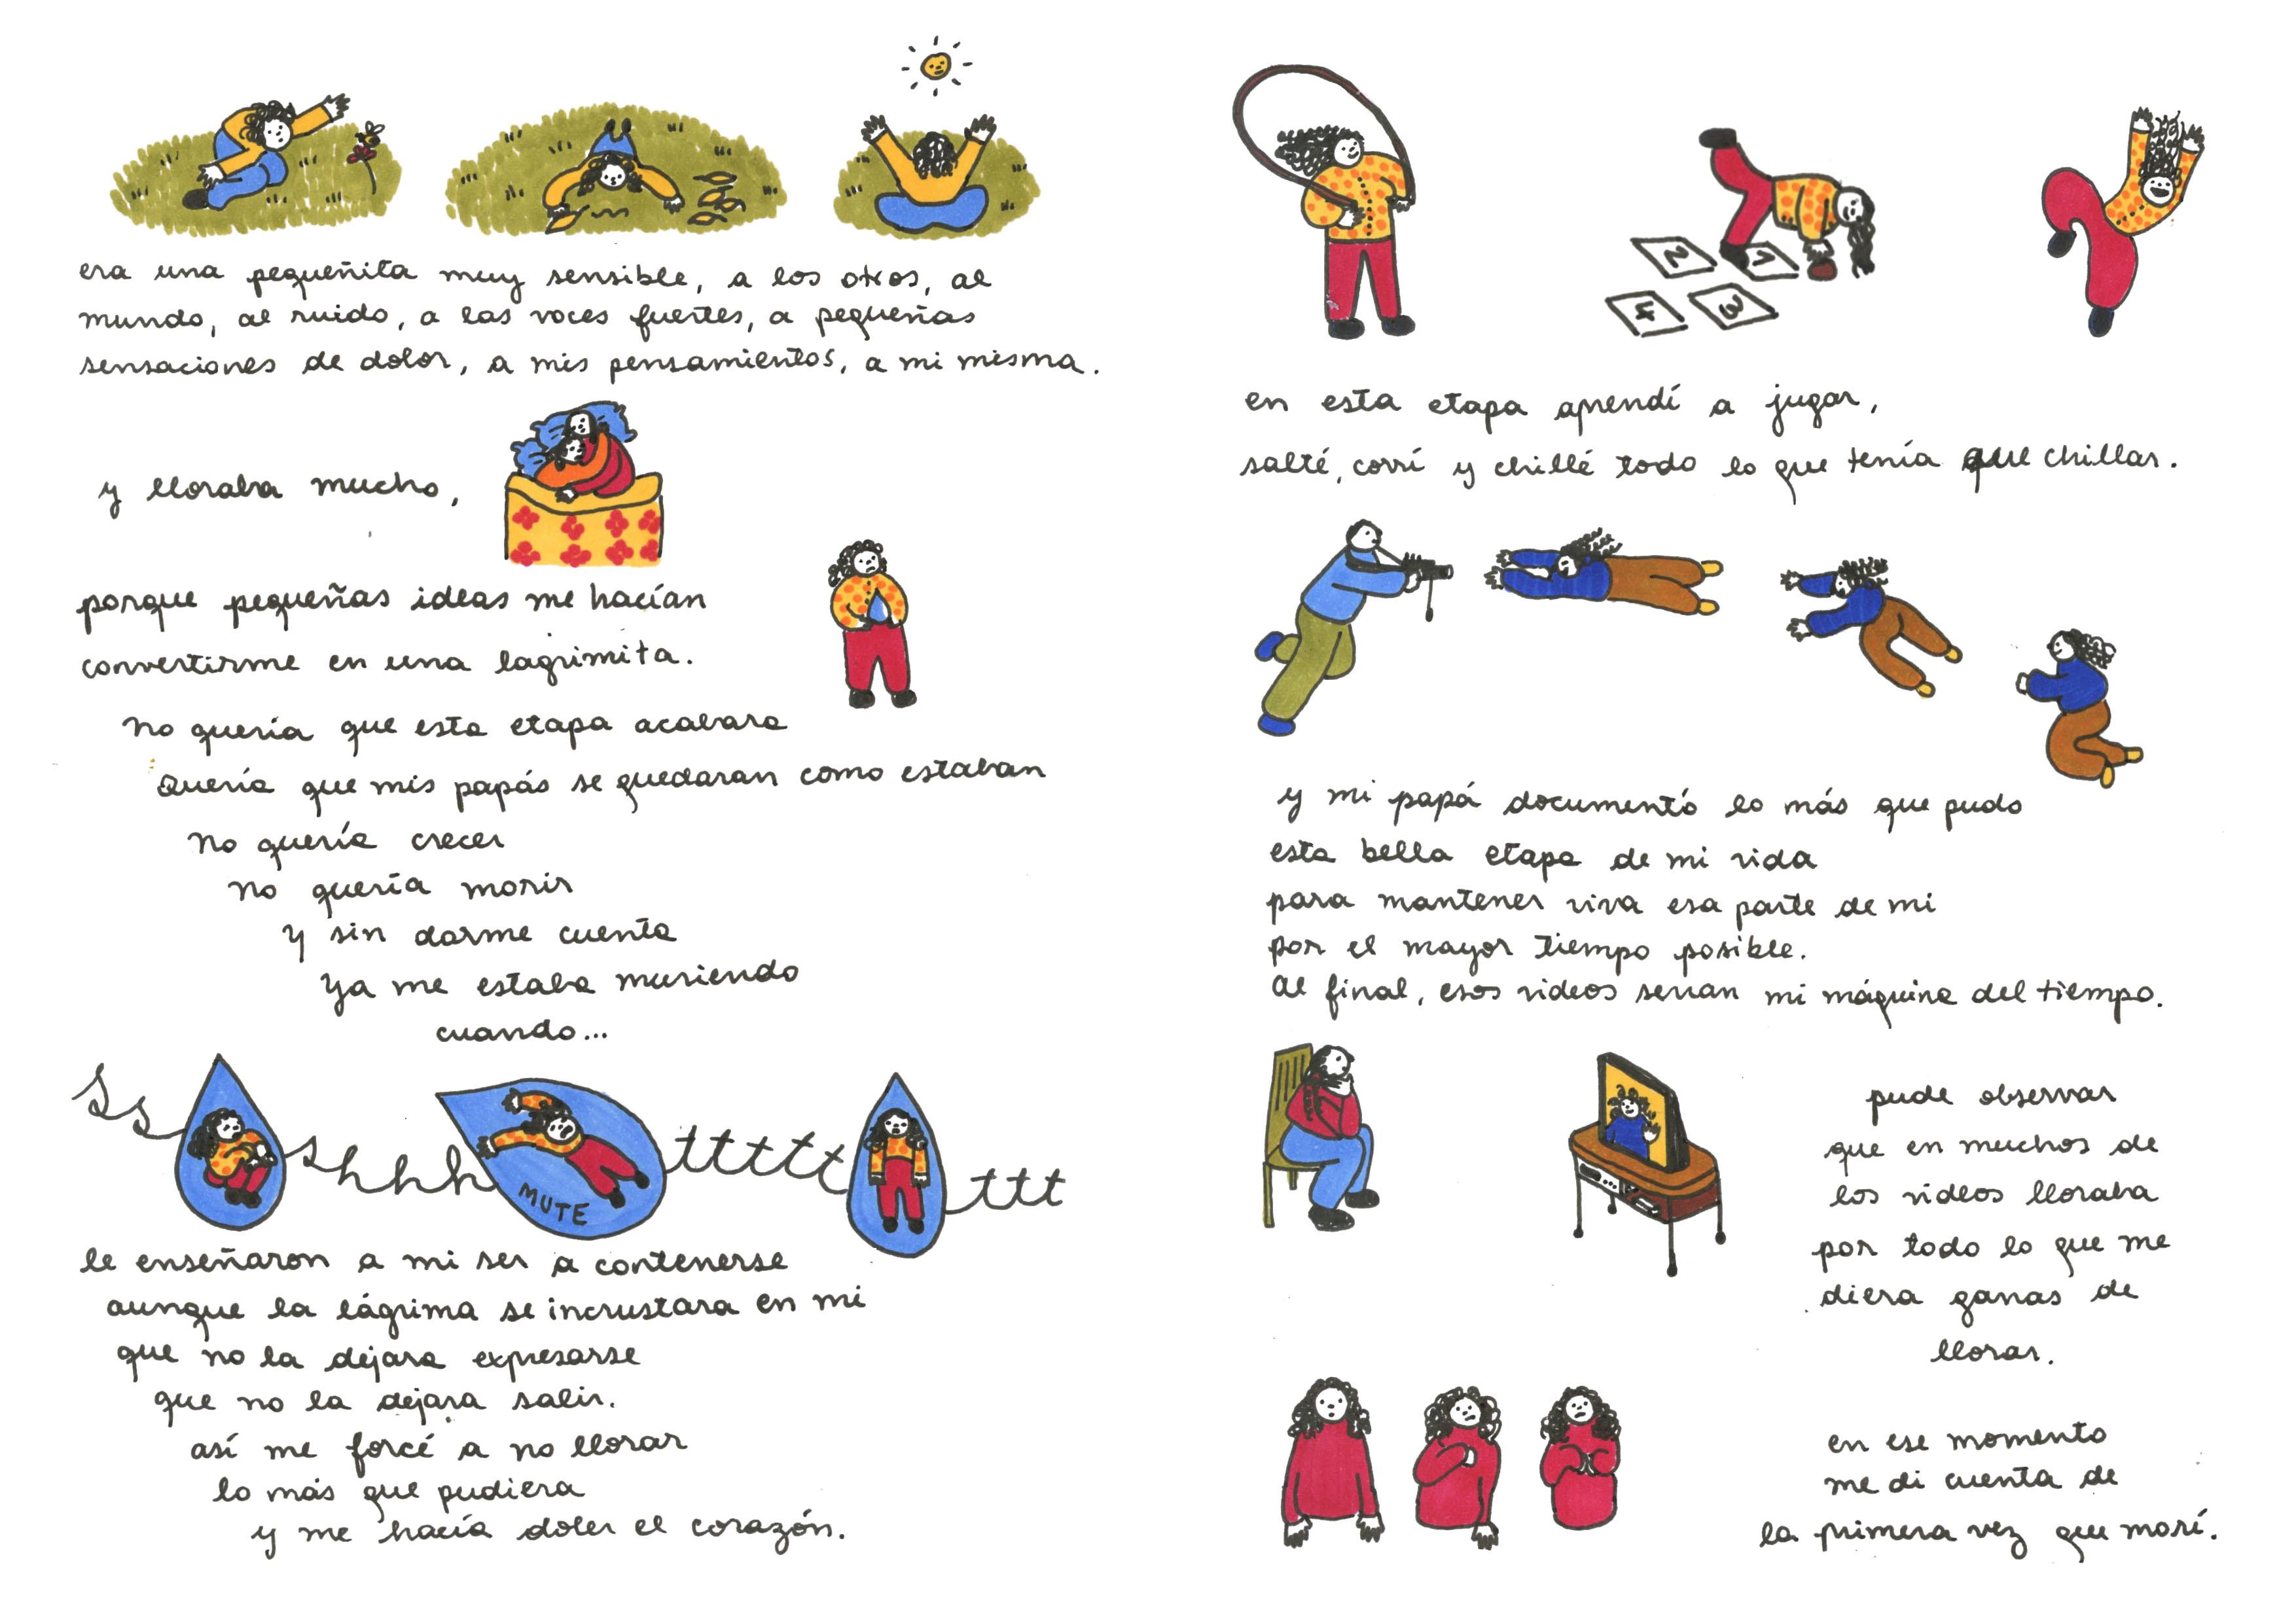 era una pequeñita muy sensible, a los otros, al
mundo, al ruido, a las voces fuertes, a pequeñas
sensaciones de dolor, a mis pensamientos, a mi misma.
y lloraba mucho,
porque pequeñas ideas me hacían
convertirme en una lagrimita.
no quería que esta etapa acabara
Quería que mis papás se quedaran como estaban
no quería crecer
no quería morir
y sin darme cuenta
ya me estaba muriendo
cuando...
Ss shhhh ttttt ttt
MUTE
le enseñaron a mi ser a contenerse
aunque la lágrima se incrustara en mi
que no la dejara expresarse
que no la dejara salir.
así me forcé a no llorar
lo más que pudiera
y me hacía doler el corazón.
2 1
4 3
en esta etapa aprendí a jugar,
salté, corrí y chillé todo lo que tenía que chillar.
y mi papá documentó lo más que pudo
esta bella etapa de mi vida
para mantener viva esa parte de mi
por el mayor tiempo posible.
Al final, esos videos serian mi máquina del tiempo.
pude observar
que en muchos de
los videos lloraba
por todo lo que me
diera ganas de
llorar.
en ese momento
me di cuenta de
la primera vez que morí.